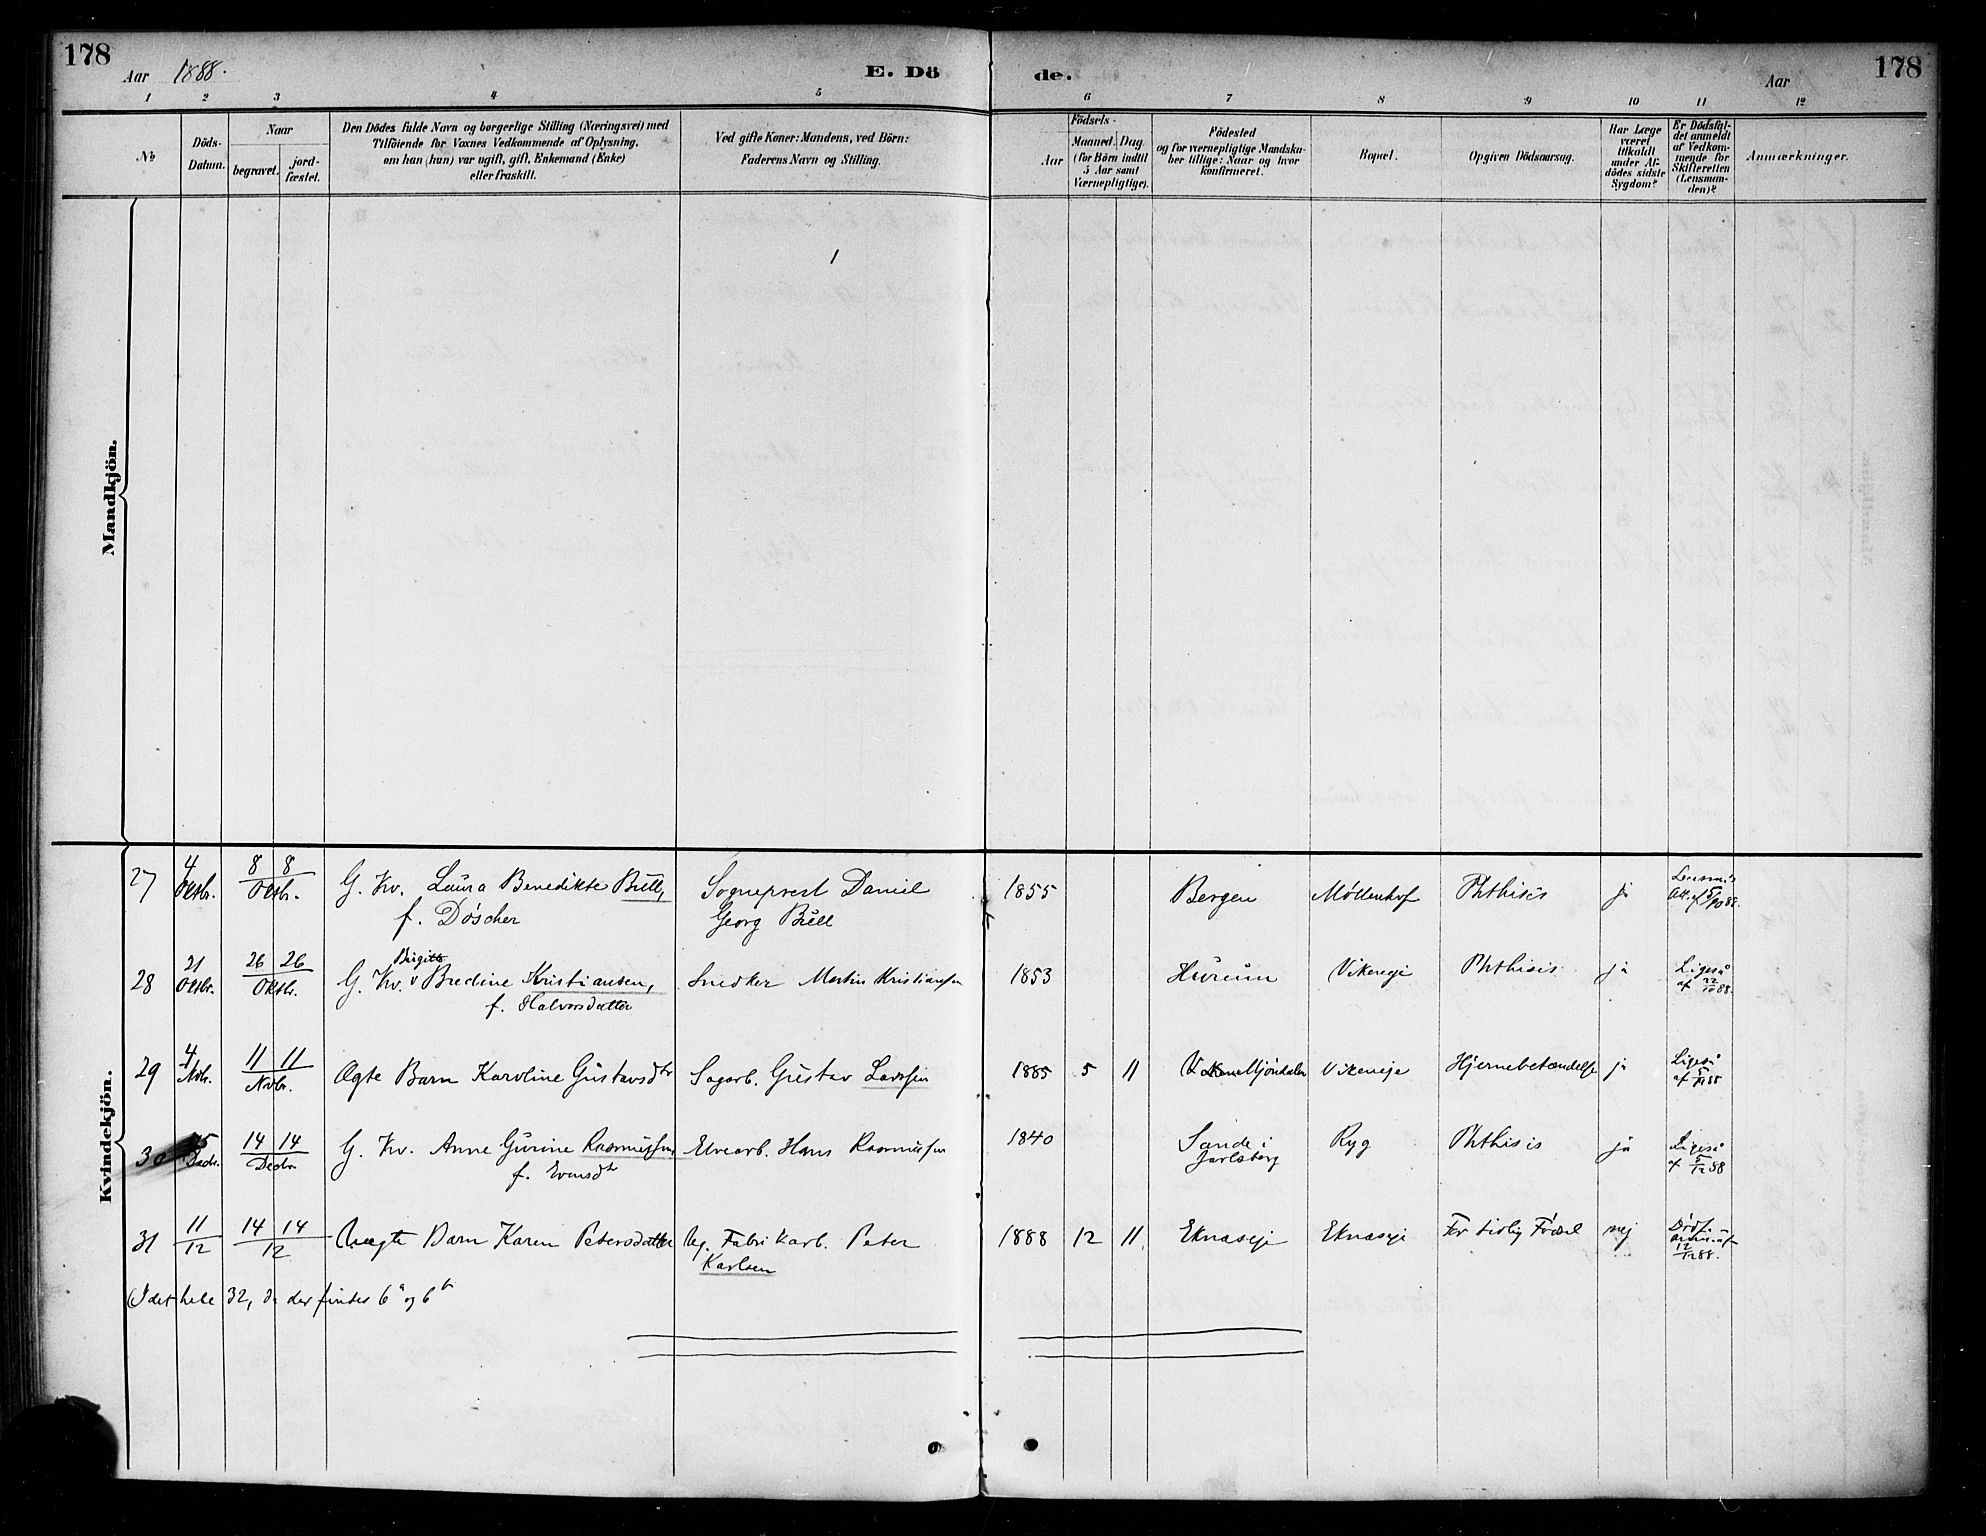 178
Aar 1888.
E. Dö
de.
Aar
178
1 2 3 4 5 6 7 8 9 10 11 12
No
Döds-
Datum.
Naar
begravet.
jord-
fæstet.
Den Dödes fulde Navn og borgerlige Stilling (Næringsvei) med
Tilföiende for Voxnes Vedkommende af Oplysning,
om han (hun) var ugift, gift, Enkemand (Enke)
eller fraskilt.
Ved gifte Koner: Mandens, ved Börn:
Faderens Navn og Stilling.
Födsels-
Aar
Maaned. Dag
(for Börn indtil
5 Aar samt
Værnepligtige).
Födested
og for værnepligtige Mandska-
ber tillige: Naar og hvor
konfirmeret.
Bopæl.
Opgiven Dödsaarsag.
Har Læge
været
tilkaldt
under Af-
dödes sidste
Sygdom?
Er Dödsfal-
det anmeldt
af Vedkom-
mende for
Skifteretten
(Lensman-
den)?
Anmærkninger.
Mandkjön.
Kvindekjön.
27 4 Oktbr. 8 8 Oktbr. G. Kv. Laura Benedikte Bull, Sogneprest Daniel 1855 Bergen Möllenhof Phthisis ja Lensm's
f. Döscher Georg Bull Att. af 5/10 88.
Birgitte
28 21 Oktbr. 26 26 Oktbr. G. Kv. Bredine Kristiansen, Snedker Martin Kristiansen 1853 Hurum Vikeneje Phthisis ja Ligeså
f. Halvorsdatter af 22/10 88.
29 4 Novbr. 11 11 Novbr. Ægte Barn Karoline Gustavsdtr Sagarb. Gustav Larssen 1885 5 11 Mjöndalen Vikeneje Hjernebetændelse ja Ligeså
af 5/11 88
30 5 Decbr. 14 14 Decbr G. Kv. Anne Gurine Rasmussen, Elvearb. Hans Rasmussen 1840 Sande i Ryg Phthisis ja Ligeså
f. Evensdtr Jarlsberg af 5/12 88
31 11/12 14 14/12 Uægte Barn Karen Petersdatter Ug. Fabrikarb. Peter 1888 12 11. Eknæseje Eknæseje For tidlig Födsel nej Dödsf.
Karlsen 12/12 88.
I det hele 32, da der findes 6a og 6b